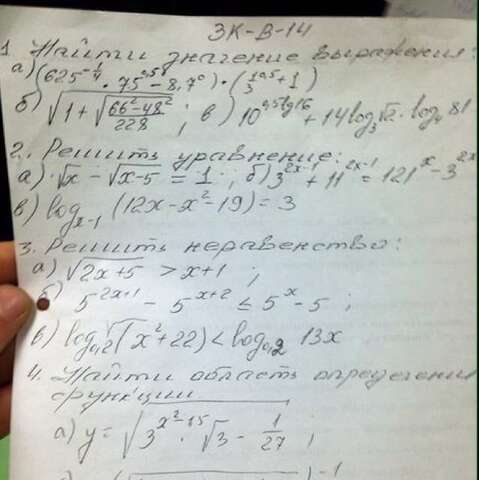 ЗК-В-14
1. Найти значение выражения:
а) (625^{-1/4} · 75^{0,5} - 8,7^0) · (1/3^{0,5} + 1)
б) √(1 + √((66² - 48²)/228)) ; в) 10^{0,5 lg 16} + 14 log_3 √2 · log_4 81
2. Решить уравнение:
а) √x - √(x-5) = 1 ; б) 3^{2x-1} + 11^{2x-1} = 121^x - 3^{2x}
в) log_{x-1} (12x - x² - 19) = 3
3. Решить неравенство:
а) √(2x+5) > x+1 ;
б) 5^{2x+1} - 5^{x+2} ≤ 5^x - 5 ;
в) log_{0,2} (x² + 22) < log_{0,2} 13x
4. Найти область определения
функции
а) y = √(3^{x²-15} · √3 - 1/27) ;